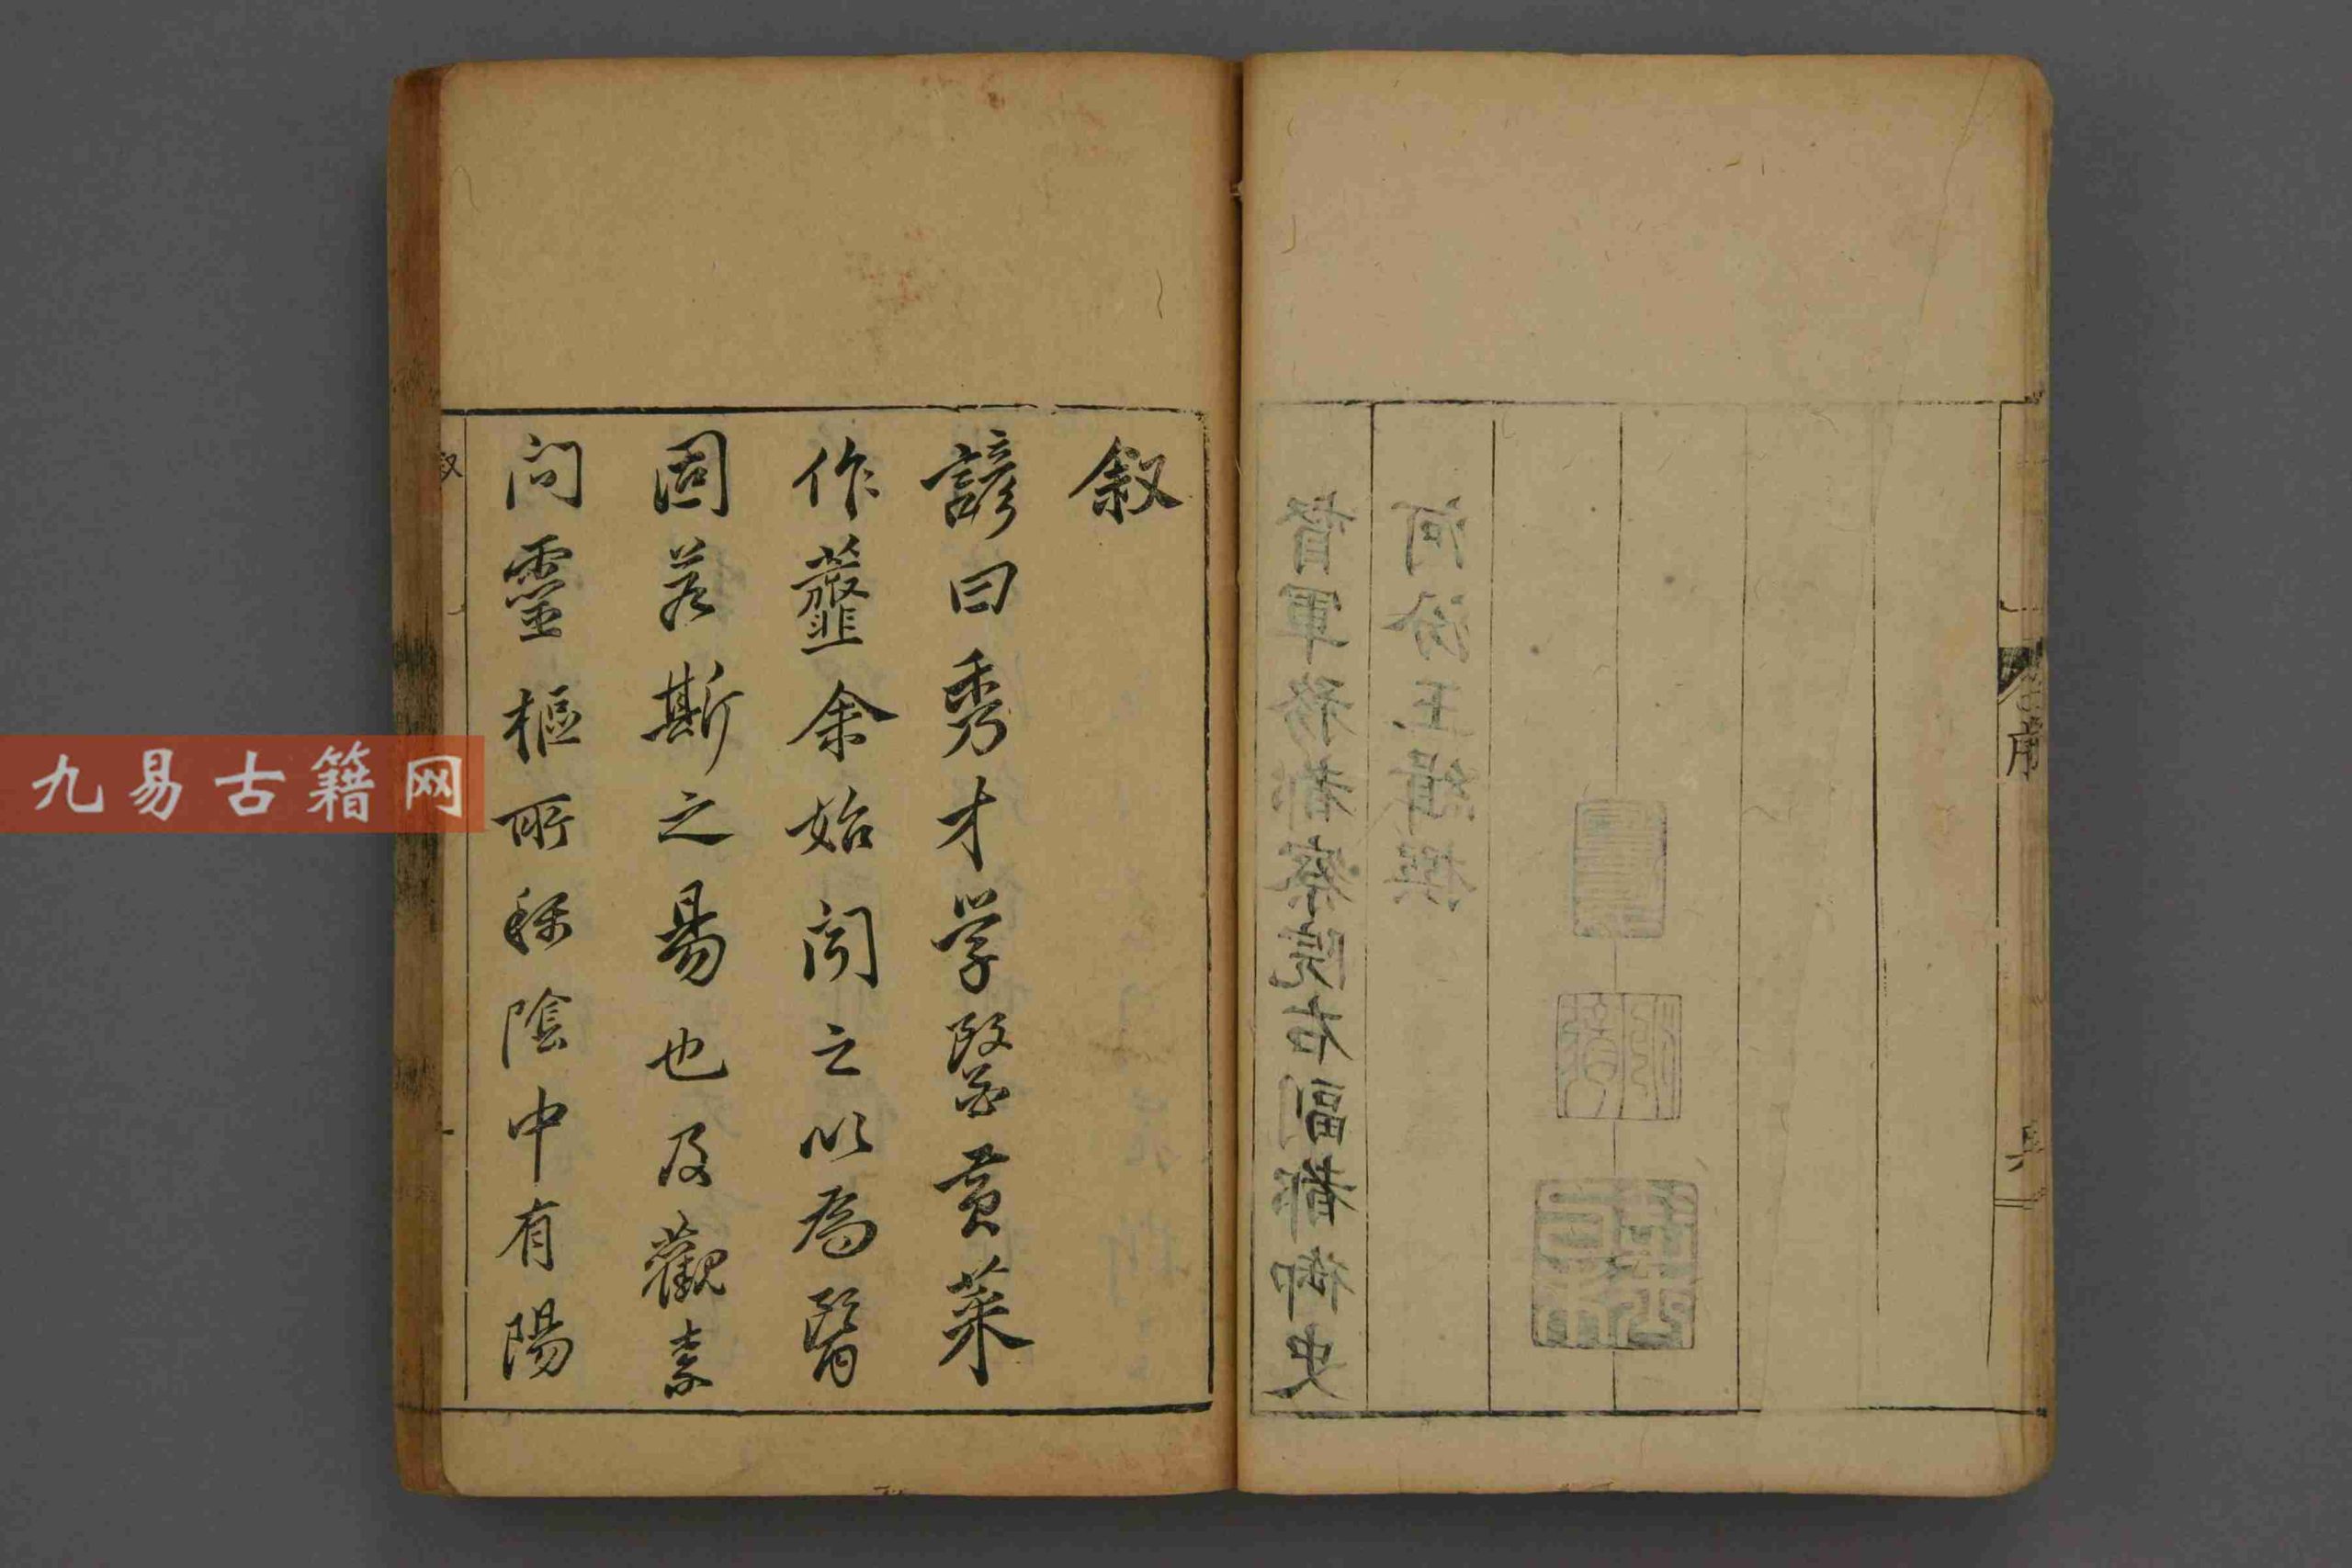 督軍務都察院右副都御史
河汾王緝撰
叙
諺曰秀才学醫黄菜
作虀余始聞之以為醫
固若斯之易也及觀素
問靈樞所稱陰中有陽
九易古籍网